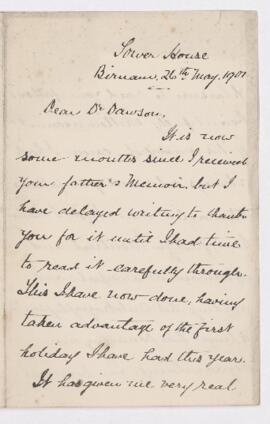 Tower House
Birnam, 26th May, 1901
Dear Dr Dawson,
It is now
some months since I received
your father's Memoir, but I
have delayed writing to thank
you for it until I had time
to read it carefully through.
This I have now done, having
taken advantage of the first
holiday I have had this year.
It has given me very real